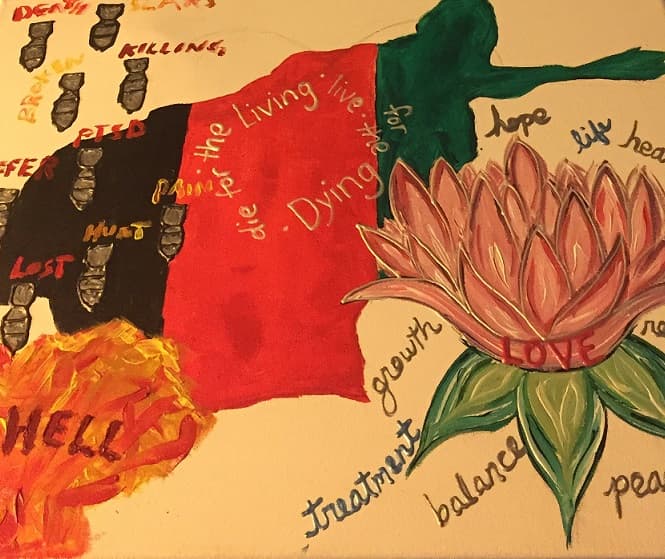 DEATH
SCARS
KILLING
BROKEN
PTSD
FFER
PAIN
HURT
LOST
HELL
die for the Living · live · for the Dying ·
hope
life
hea
LOVE
growth
treatment
balance
pea